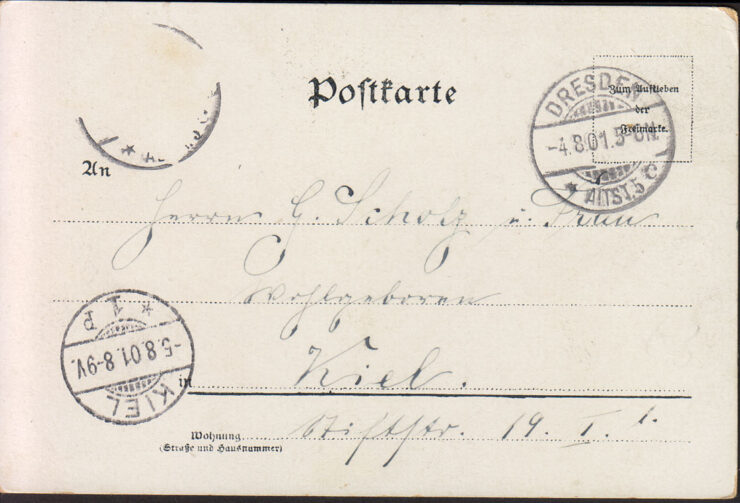 Postkarte
Zum Aufkleben
der
Freimarke.
DRESDEN
-4.8.01.5-6N.
* ALTST.5 c
An
Herrn G. Scholz u. Frau
Wohlgeboren
* 1 P
-5.8.01.8-9V.
KIEL
in Kiel.
Wohnung Stiftstr. 19. I. l.
(Straße und Hausnummer)